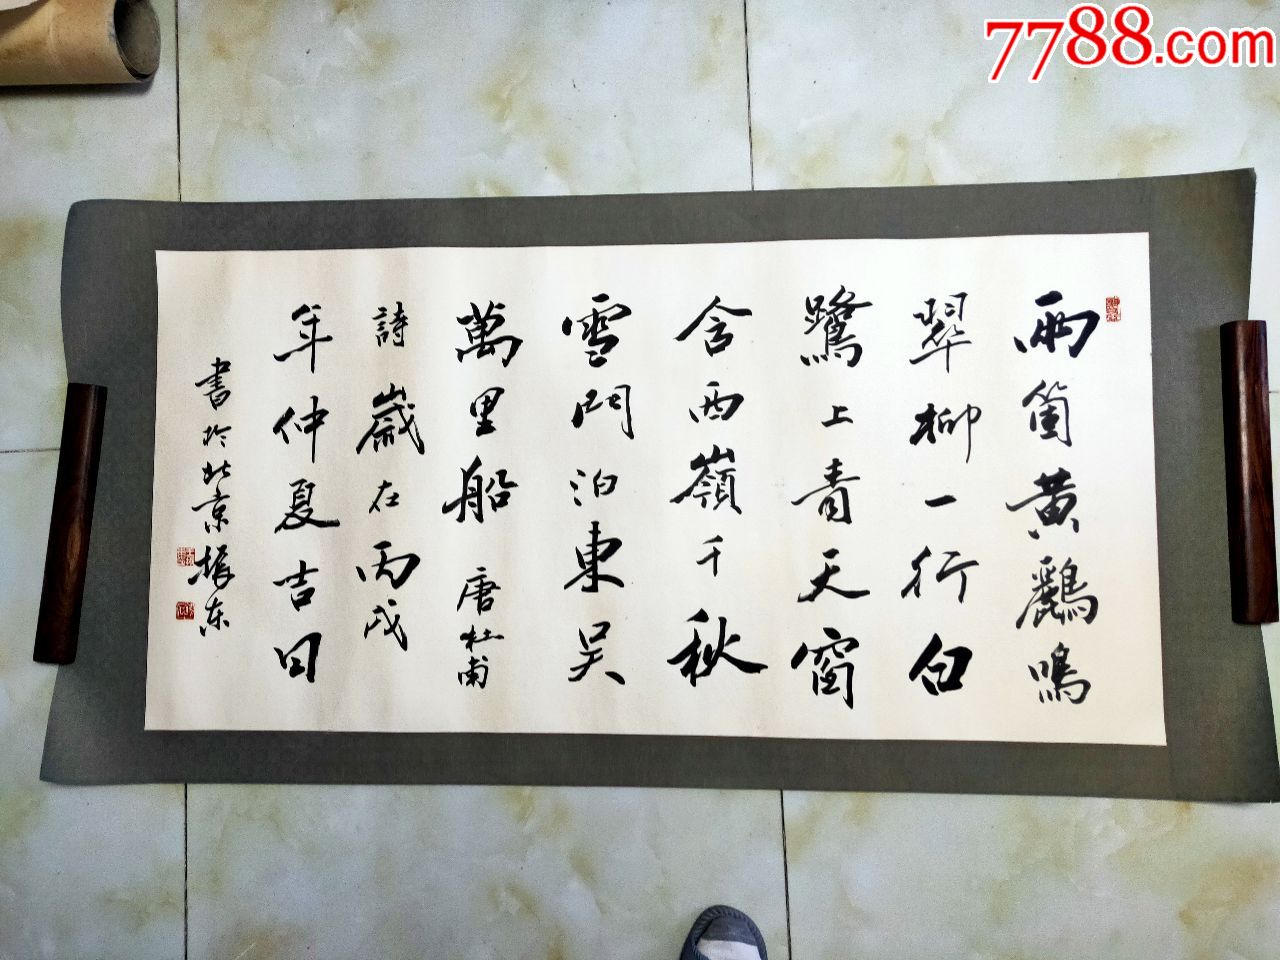 7788.com
兩箇黄鸝鳴
翠柳一行白
鷺上青天窗
含西嶺千秋
雪門泊東吴
萬里船 唐杜甫
詩 歲在丙戌
年仲夏吉日
書於北京振东